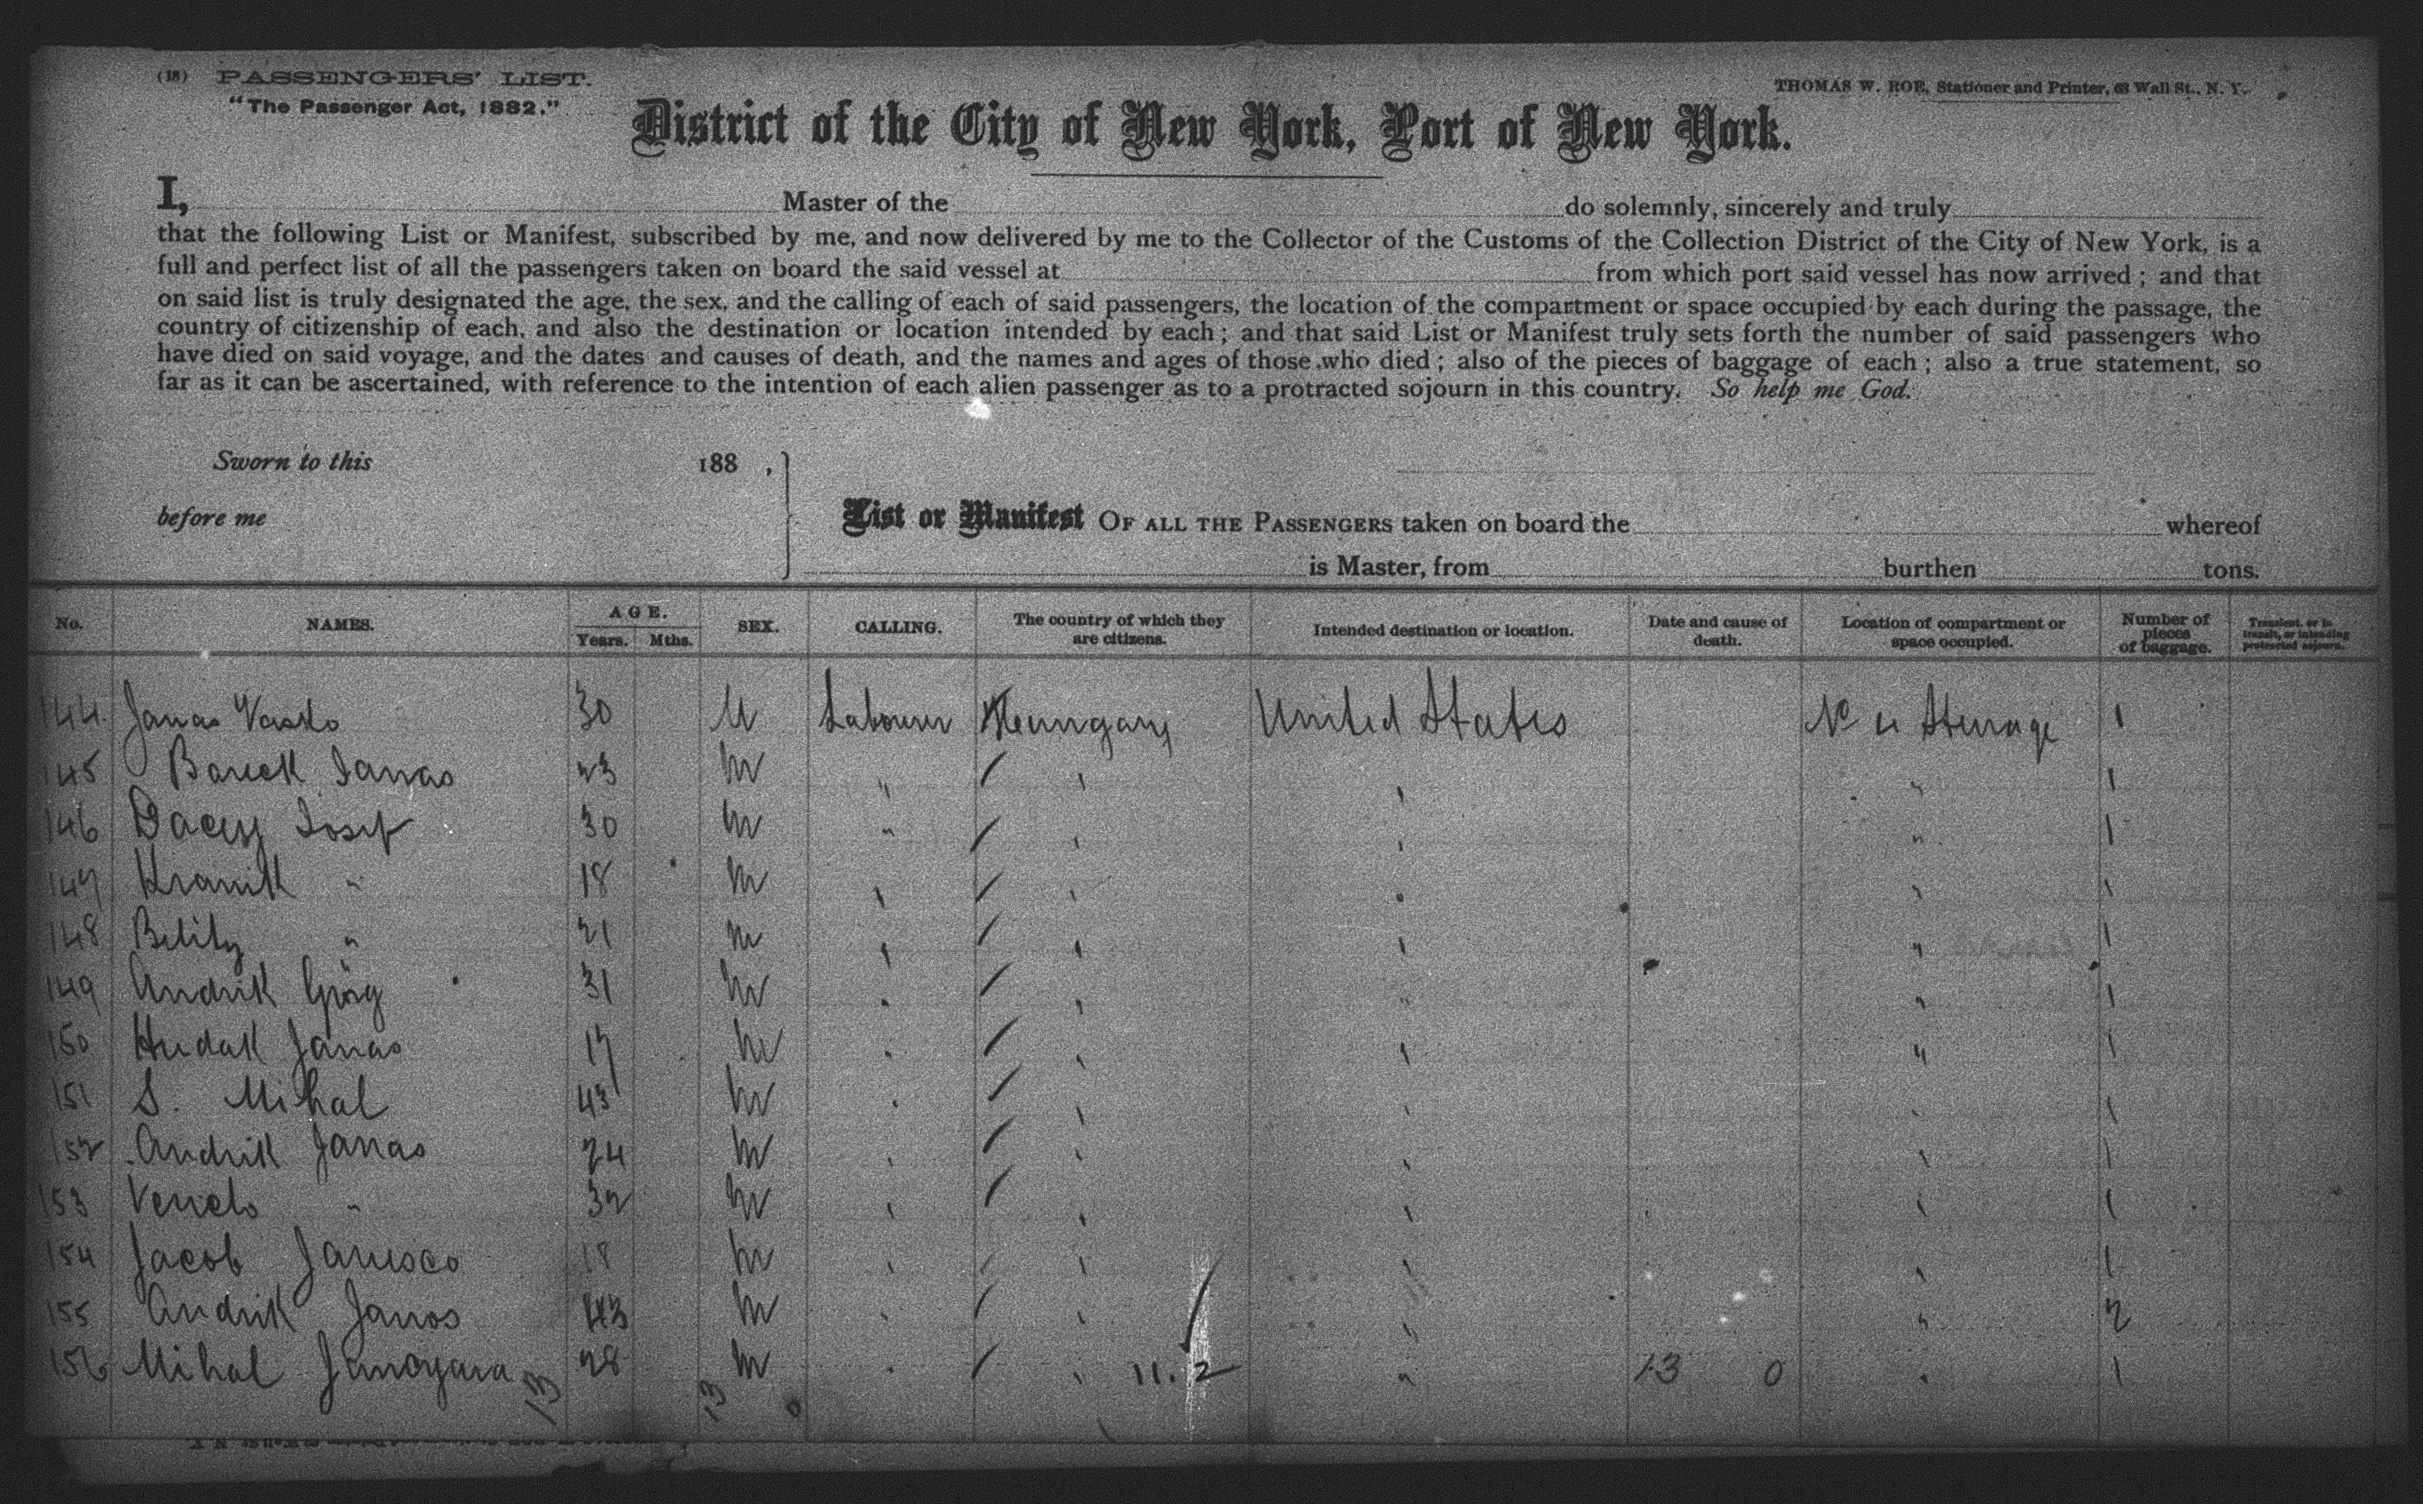 (18) PASSENGERS' LIST.
"The Passenger Act, 1882."
THOMAS W. ROE, Stationer and Printer, 63 Wall St., N. Y.
District of the City of New York, Port of New York.
I, Master of the do solemnly, sincerely and truly
that the following List or Manifest, subscribed by me, and now delivered by me to the Collector of the Customs of the Collection District of the City of New York, is a
full and perfect list of all the passengers taken on board the said vessel at from which port said vessel has now arrived ; and that
on said list is truly designated the age, the sex, and the calling of each of said passengers, the location of the compartment or space occupied by each during the passage, the
country of citizenship of each, and also the destination or location intended by each ; and that said List or Manifest truly sets forth the number of said passengers who
have died on said voyage, and the dates and causes of death, and the names and ages of those who died ; also of the pieces of baggage of each ; also a true statement, so
far as it can be ascertained, with reference to the intention of each alien passenger as to a protracted sojourn in this country. So help me God.
Sworn to this 188 ,
before me
List or Manifest OF ALL THE PASSENGERS taken on board the whereof
is Master, from burthen tons.
No. NAMES. AGE. Years. Mths. SEX. CALLING. The country of which they are citizens. Intended destination or location. Date and cause of death. Location of compartment or space occupied. Number of pieces of baggage. Transient, or in transit, or intending protracted sojourn.
144. Janas Vasko 30 M Labourer Hungary United States No Sterage 1
145 Janas 23 M " ' ' " 1
146 Josif 30 M " ' ' " 1
147 " 18 M ' ' ' ' 1
148 " 21 M ' ' ' " 1
149 Andrik 31 M ' ' " " 1
150 Hudak Janas 17 M ' ' ' " 1
151 S. Mihal 43 M ' ' ' ' 1
152 Andrik Janas 24 M ' ' ' ' 1
153 " 32 M ' ' ' ' 1
154 Jacob Janusco 18 M ' ' ' ' 1
155 Andrik Janos 43 M ' ' " " 2
156 Mihal 28 M ' ' 11. 2 " 13 0 ' 1
13 13 0